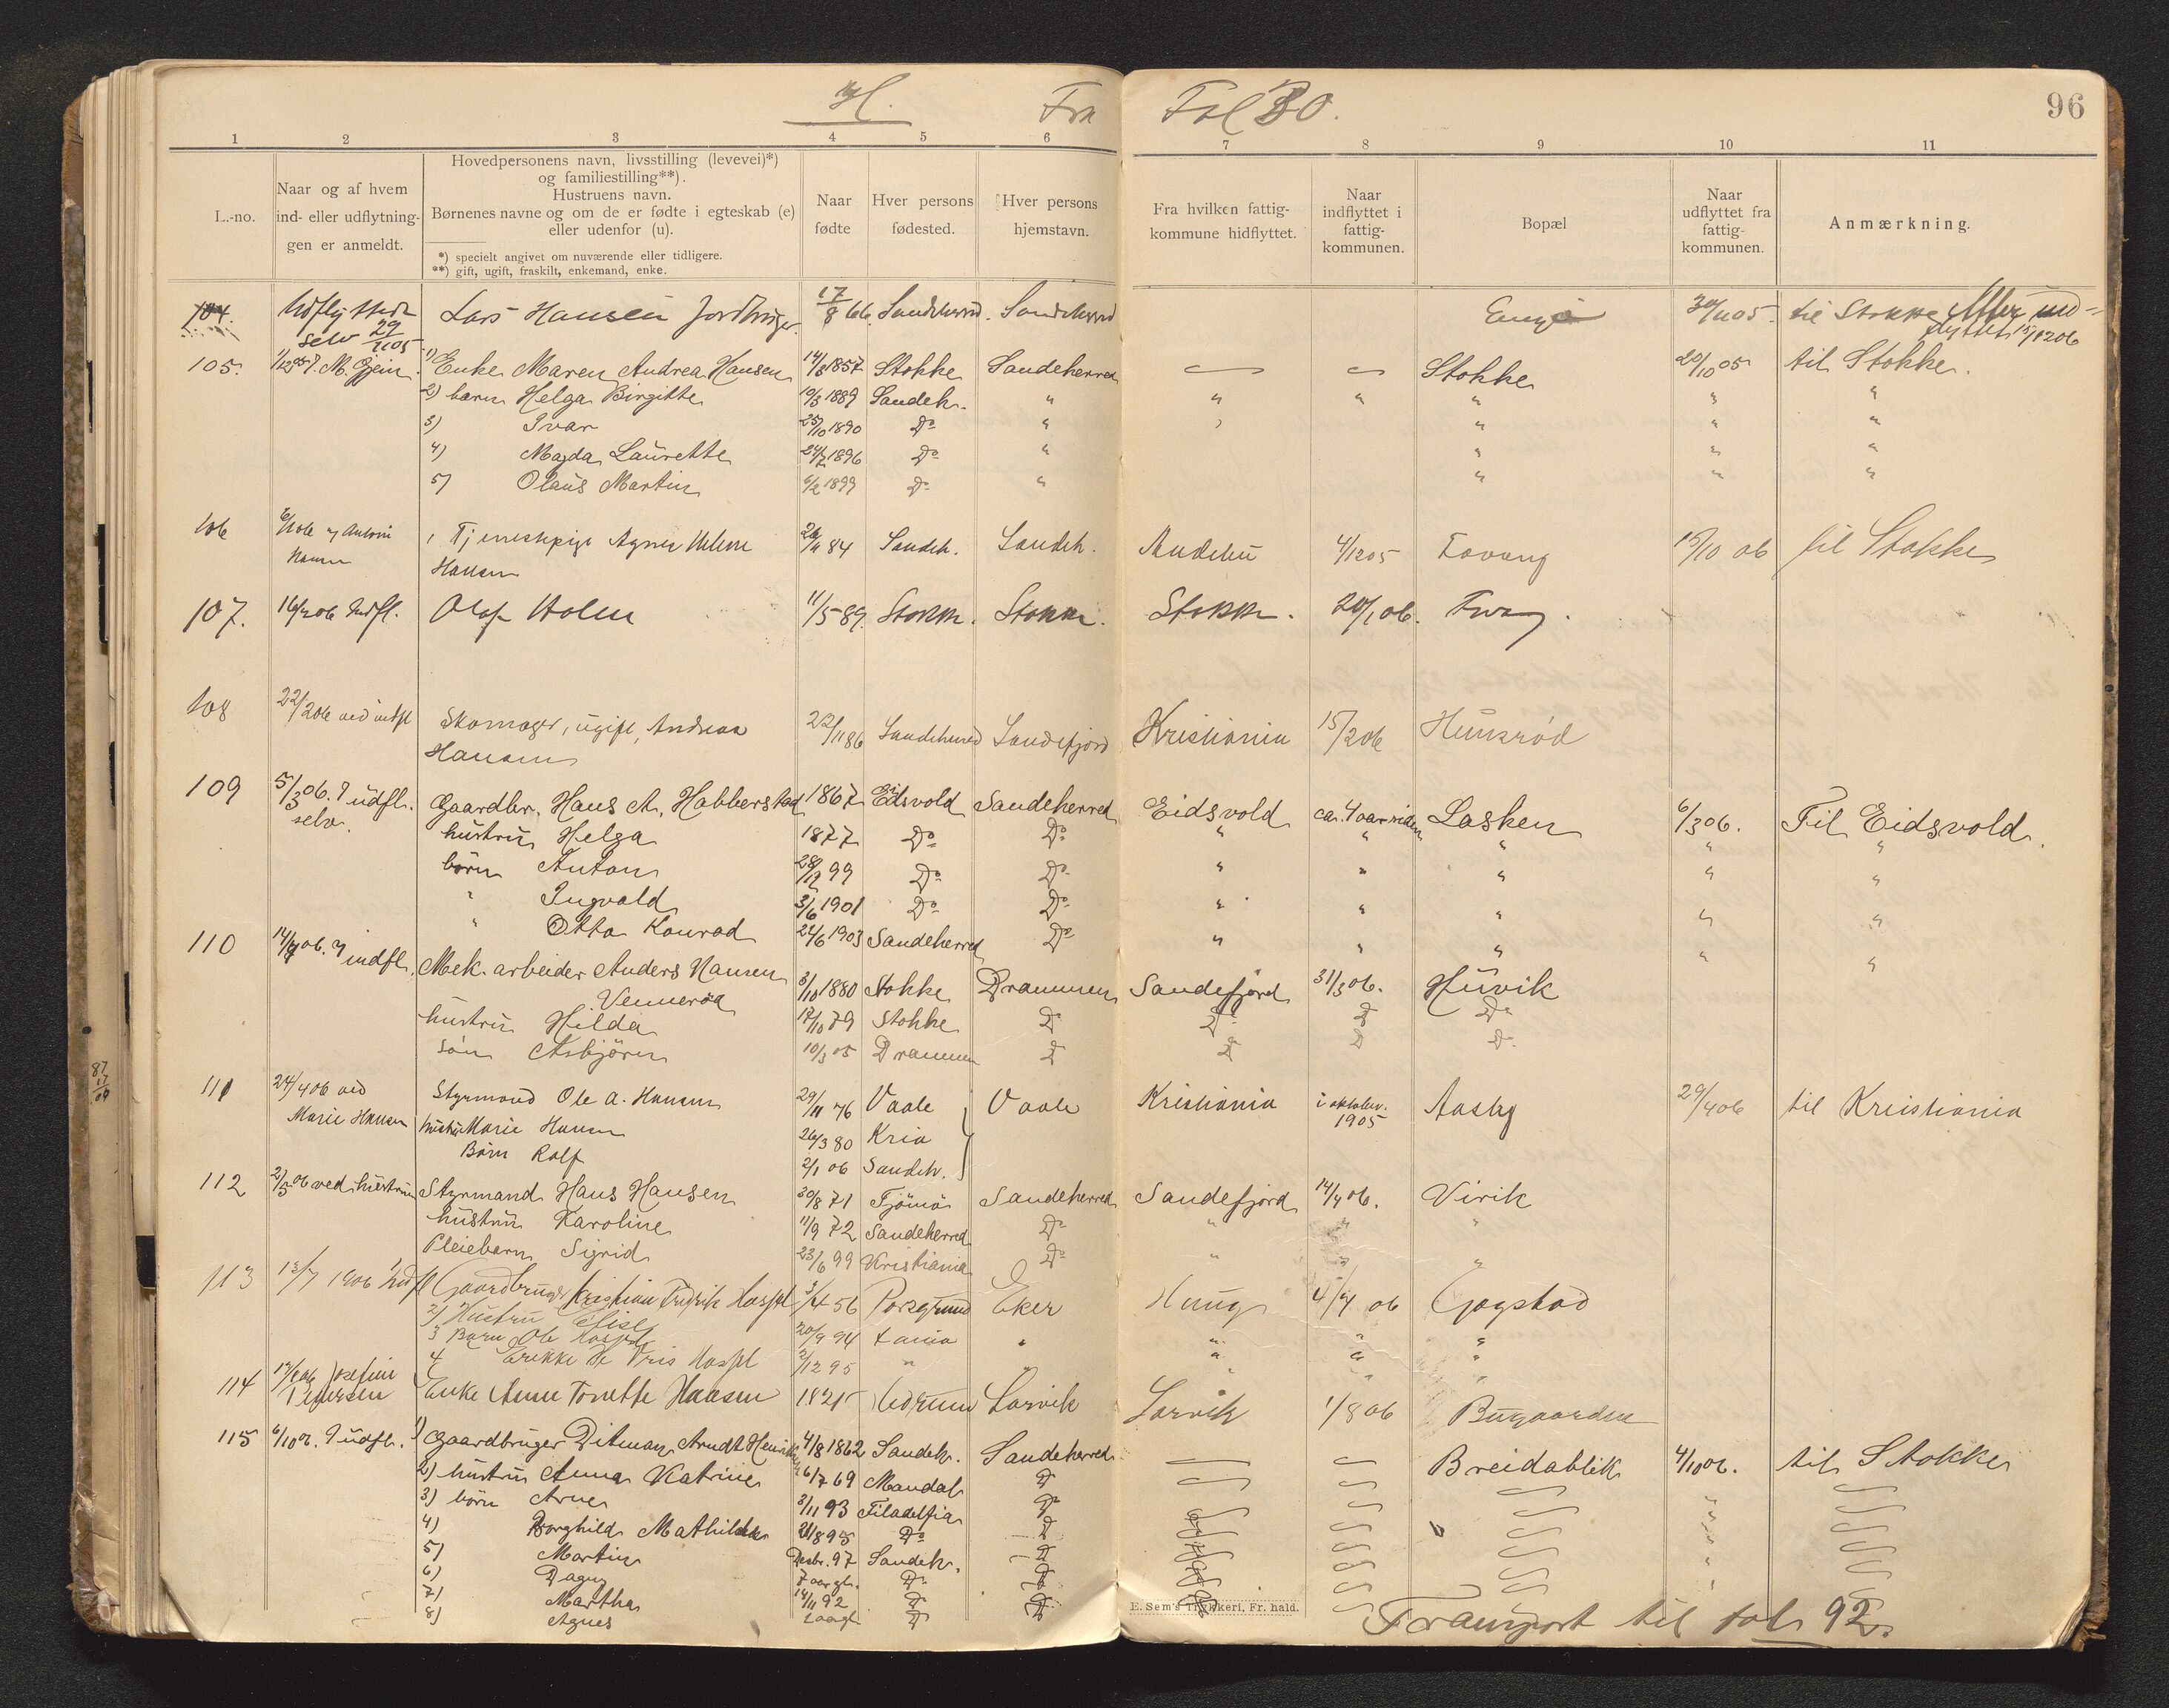 H. Fra Fol 80. 96
1 2 3 4 5 6 7 8 9 10 11
L.-no.
Naar og af hvem
ind- eller udflytning-
gen er anmeldt.
Hovedpersonens navn, livsstilling (levevei)*)
og familiestilling**).
Hustruens navn.
Børnenes navne og om de er fødte i egteskab (e)
eller udenfor (u).
*) specielt angivet om nuværende eller tidligere.
**) gift, ugift, fraskilt, enkemand, enke.
Naar
fødte
Hver persons
fødested.
Hver persons
hjemstavn.
Fra hvilken fattig-
kommune hidflyttet.
Naar
indflyttet i
fattig-
kommunen.
Bopæl
Naar
udflyttet fra
fattig-
kommunen.
Anmærkning.
104. Lars Hansen 17/8 66. Sandeherred. Sandeherred 30/11 05. til Stokke Atter ind-
selv 29/11 05 flyttet 15/12 06
105. M. Gjein 1) Enke Maren Andrea Hansen 14/8 1857 Stokke Sandeherred — — Stokke 20/10 05 til Stokke.
2) barn Helga Birgitte 10/3 1889 Sandeh. " " " " " "
3) Ivar 25/10 1890 Do " " " " "
4) Magda Laurette 24/7 1896 Do " " " "
5) Olaus Martin 6/2 1899 Do " " " "
106 Tjenestepige Agnes Helene 84 Sandeh. Sandeh. Andebu 4/12 05 Fevang 15/10 06 til Stokke
Hansen Hansen
107. 16/2 06 Indfl. Olaf Holm 11/5 89. Stokke. Stokke. Stokke. 24/1 06.
108 22/2 06 ved indfl Skomager, ugift, Andreas 22/11 86 Sandeherred Sandefjord Kristiania 15/2 06 Hunsrød
Hansen
109 5/3 06. udfl. Gaardbr. Hans A. Habberstad 1867 Eidsvold Sandeherred Eidsvold ca. 4 aar siden Lasken 6/3 06. Til Eidsvold.
selv. hustru Helga 1877 Do Do " " " " "
børn Anton 28/12 99 Do Do " " " " "
" Ingvald 3/6 1901 Do Do " " " " "
" Otto Konrad 24/6 1903 Sandeherred Do " " " " "
110 14/4 06. indfl. Mek. arbeider Anders Hansen 3/10 1880 Stokke Drammen Sandefjord 31/3 06. Huvik
Vennerød
hustru Hilda 17/10 79 Stokke Do Do Do Do
søn Asbjørn 10/3 05 Drammen Do Do Do Do
111 24/4 06 ved Styrmand Ole A. Hansen 29/11 76 Vaale Vaale Kristiania i oktober. Aasby 29/4 06 til Kristiania
Marie Hansen hustru Marie Hansen 26/3 80 Kria 1905
Børn Rolf 2/1 06 Sandeh.
112 2/5 06 ved hustru Styrmand Hans Hansen 30/8 71 Tjømø Sandeherred Sandefjord 14/4 06. Virik
hustru Karoline 11/9 72 Sandeherred Do " " "
Pleiebarn Sigrid 23/6 99 Kristiania Do " " "
113 13/7 1906 Indfl Gaardbruger Kristian Fredrik Haspl 3/4 56 Porsgrund Eker Haug 4/4 06 Gogstad
2) Hustru Elise
3 Barn Ole Haspl 20/9 94 " " " "
4 de Vris Haspl 2/12 95 " " " " "
114 Josefine Enke Anne Tonette Hansen Hedrum Larvik Larvik 1/8 06 Bugaarden
Petersen
115 6/10 06. udfl. 1) Gaardbruger Ditman Arndt Henriksen 4/8 1862 Sandeh. Sandeherred — — Breidablik 4/10 06. til Stokke
2) hustru Anna Katrine 26/7 69 Mandal Do
3) børn Arne 3/11 93 Filadelfia Do
4) Borghild Mathilde 21/8 95 Do Do
5) Martin Desbr. 97 Sandeh. Do
6) Dagny 7 aar gl. Do Do
7) Martha 14/11 92 Do Do
8) Agnes 2 aar gl. Do Do
E. Sem's Trykkeri, Fr. hald.
Transport til fol 92.
87
17
09